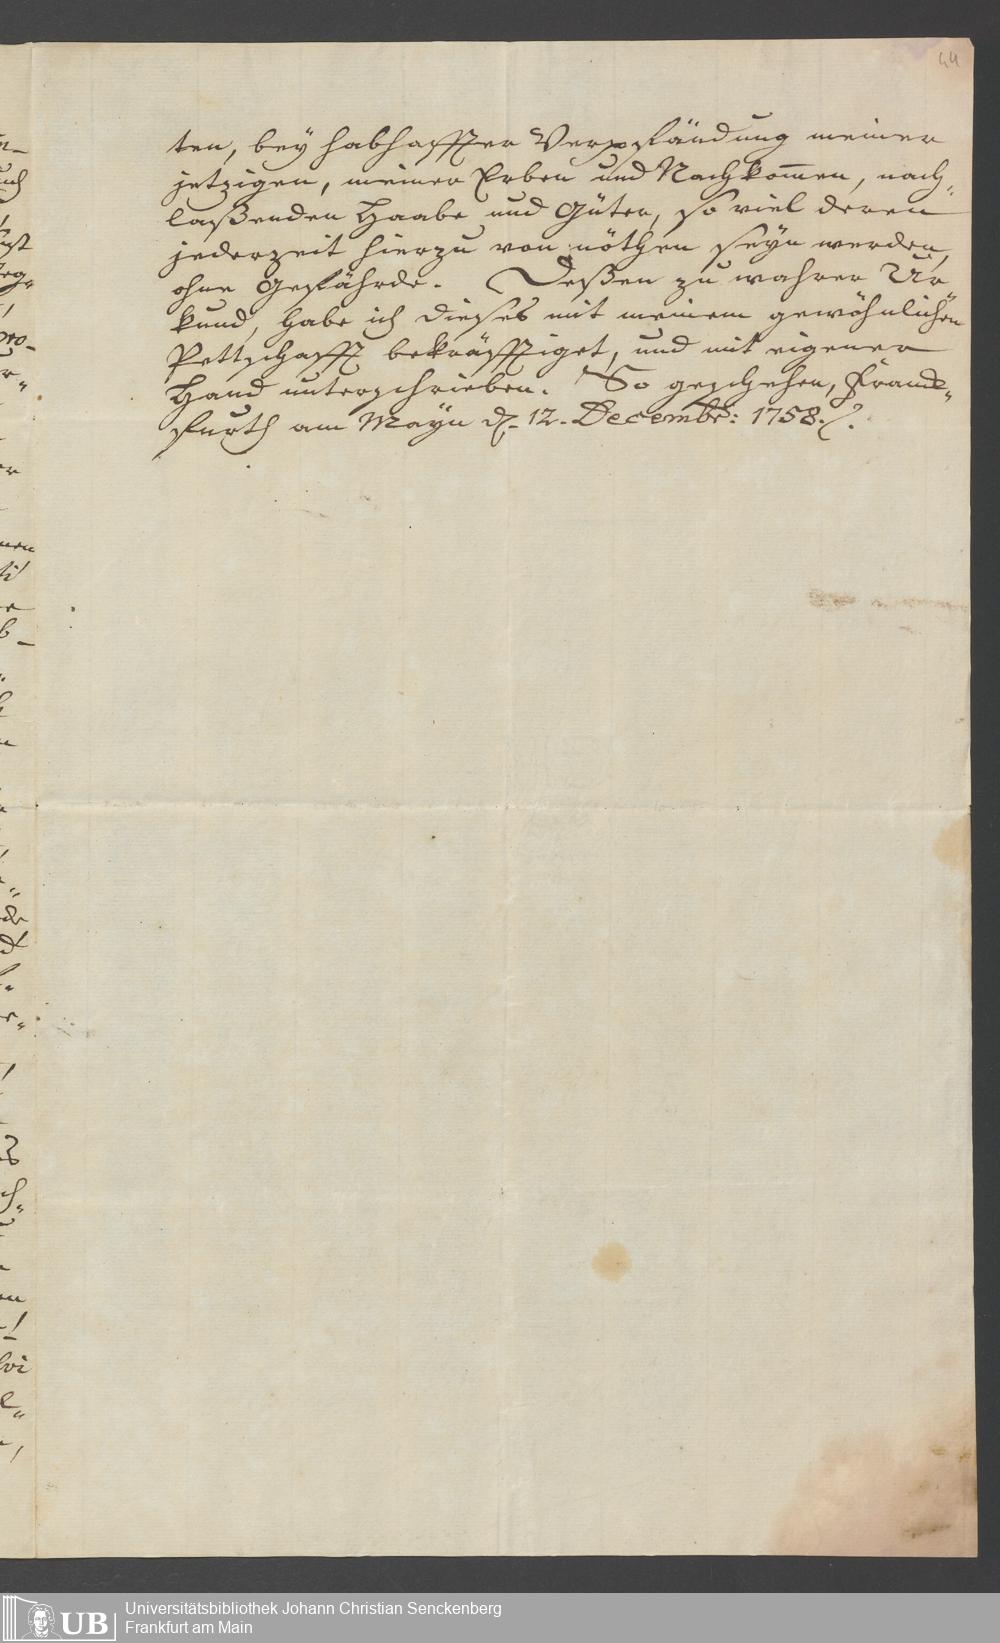 44
ten, bey habhaffter Verpfändung meiner
jetzigen, meiner Erben und Nachkom̄en, nach„
laßenden Haabe und Güter, so viel deren
jederzeit hierzu von nöthen seyn werden,
ohne Gefährde. Deßen zu wahrer Ur
kund, habe ich dieses mit meinem gewöhnlichen
Pettschafft bekräfftiget, und mit eigener
Hand unterschrieben. So geschehen, Franck„
furth am Mayn d. 12. Decembr: 1758.
UB
Universitätsbibliothek Johann Christian Senckenberg
Frankfurt am Main